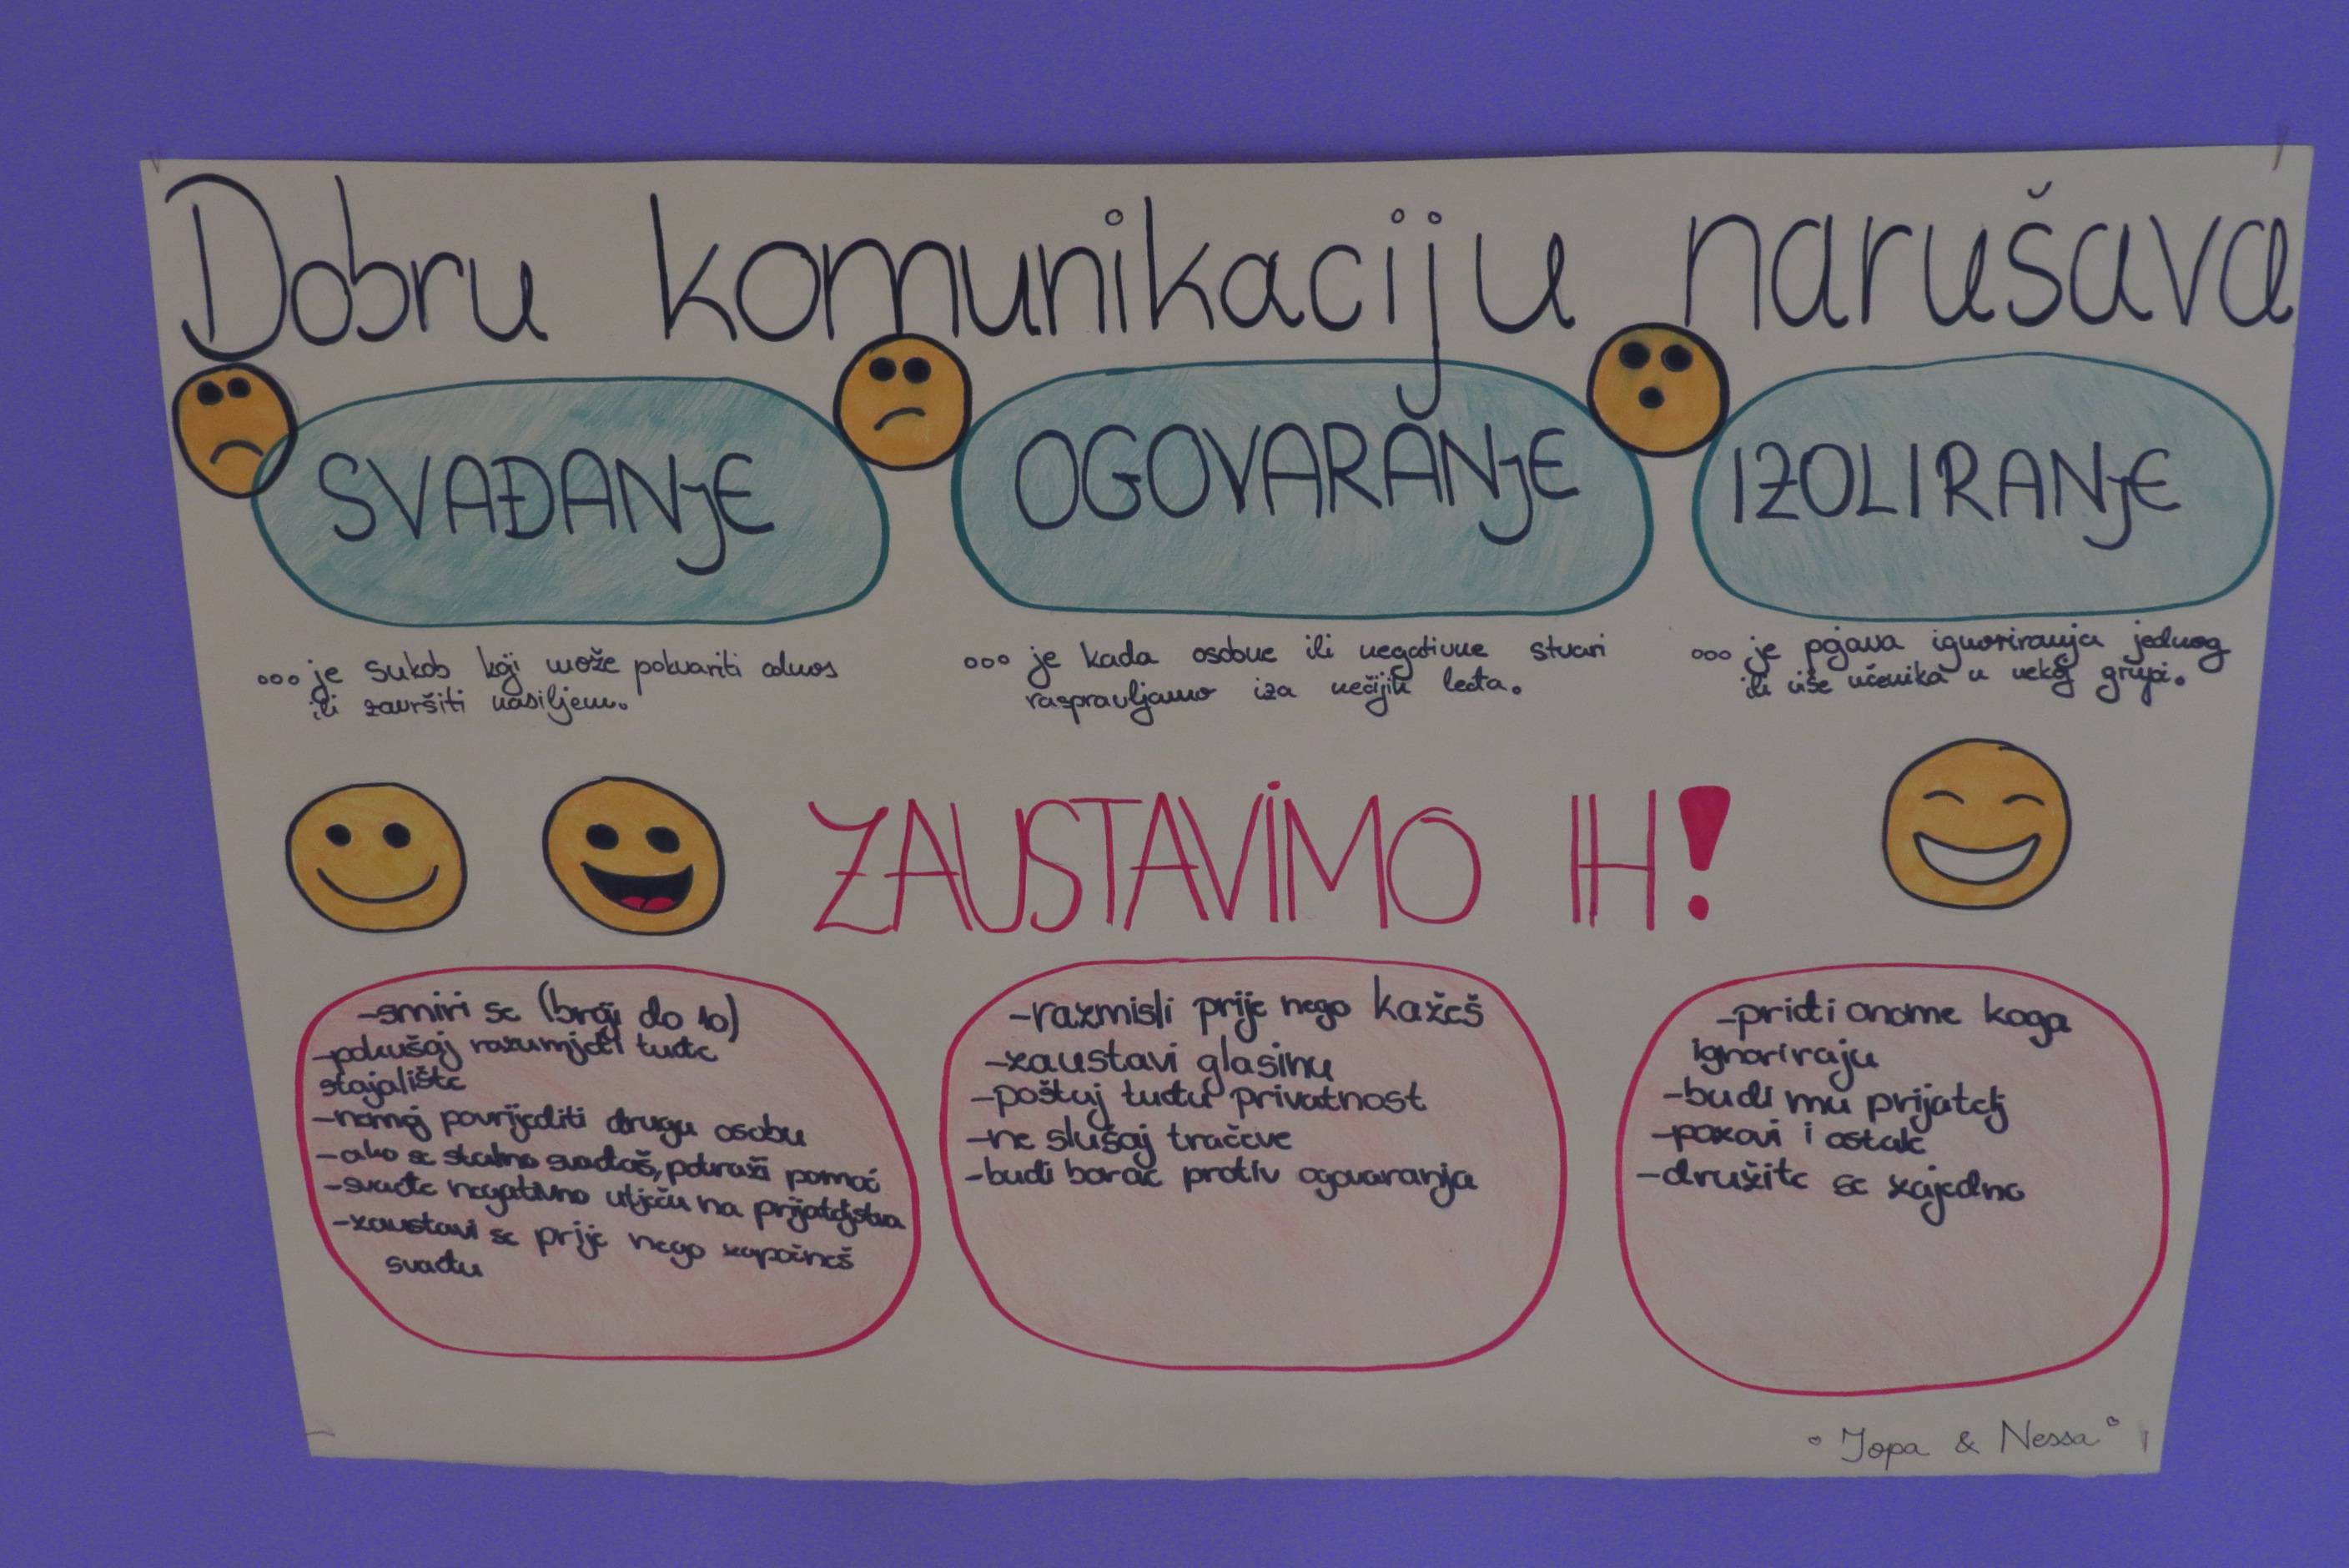 Dobru komunikaciju narušava
SVAĐANjE
OGOVARANjE
IZOLIRANjE
...je sukob koji može pokvariti odnos
ili završiti nasiljem.
...je kada osobne ili negativne stvari
raspravljamo iza nečijih leđa.
...je pojava ignoriranja jednog
ili više učenika u nekoj grupi.
ZAUSTAVIMO IH!
-smiri se (broji do 10)
-pokušaj razumjeti tuđe
stajalište
-nemoj povrijediti drugu osobu
-ako se stalno svađaš, potraži pomoć
-svađe negativno utječu na prijateljstva
-zaustavi se prije nego započneš
svađu
-razmisli prije nego kažeš
-zaustavi glasinu
-poštuj tuđu privatnost
-ne slušaj tračeve
-budi borac protiv ogovaranja
-priđi onome koga
ignoriraju
-budi mu prijatelj
-pozovi i ostale
-družite se zajedno
Jopa & Nessa